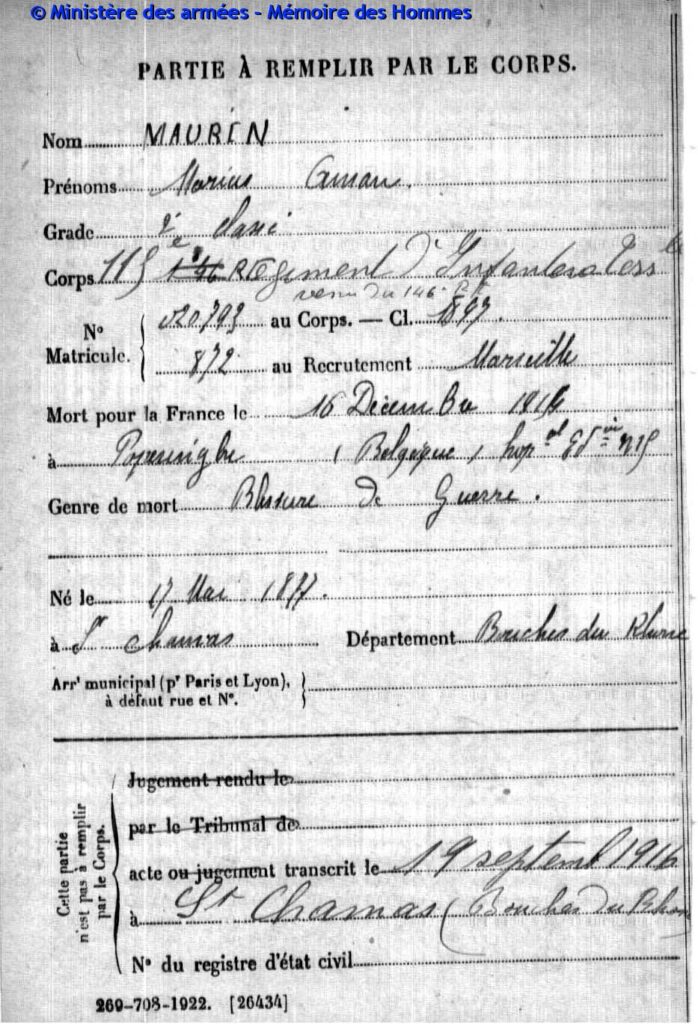 © Ministère des armées - Mémoire des Hommes
PARTIE À REMPLIR PAR LE CORPS.
Nom MAURIN
Prénoms Marius
Grade 2e classe
Corps 115 e 146 Régiment d'Infanterie Terr le
venu du 146
No Matricule. 020793 au Corps. — Cl. 1897.
872 au Recrutement Marseille
Mort pour la France le 16 Décembre
à Poperinghe (Belgique) hop al
Genre de mort Blessure de Guerre.
Né le 17 Mai 1877.
à St Chamas Département Bouches du Rhone
Arrt municipal (pr Paris et Lyon),
à défaut rue et No.
Cette partie n'est pas à remplir par le Corps.
Jugement rendu le
par le Tribunal de
acte ou jugement transcrit le 19 septemb 1916
à St Chamas (Bouches du Rhon
No du registre d'état civil
269-708-1922. [26434]